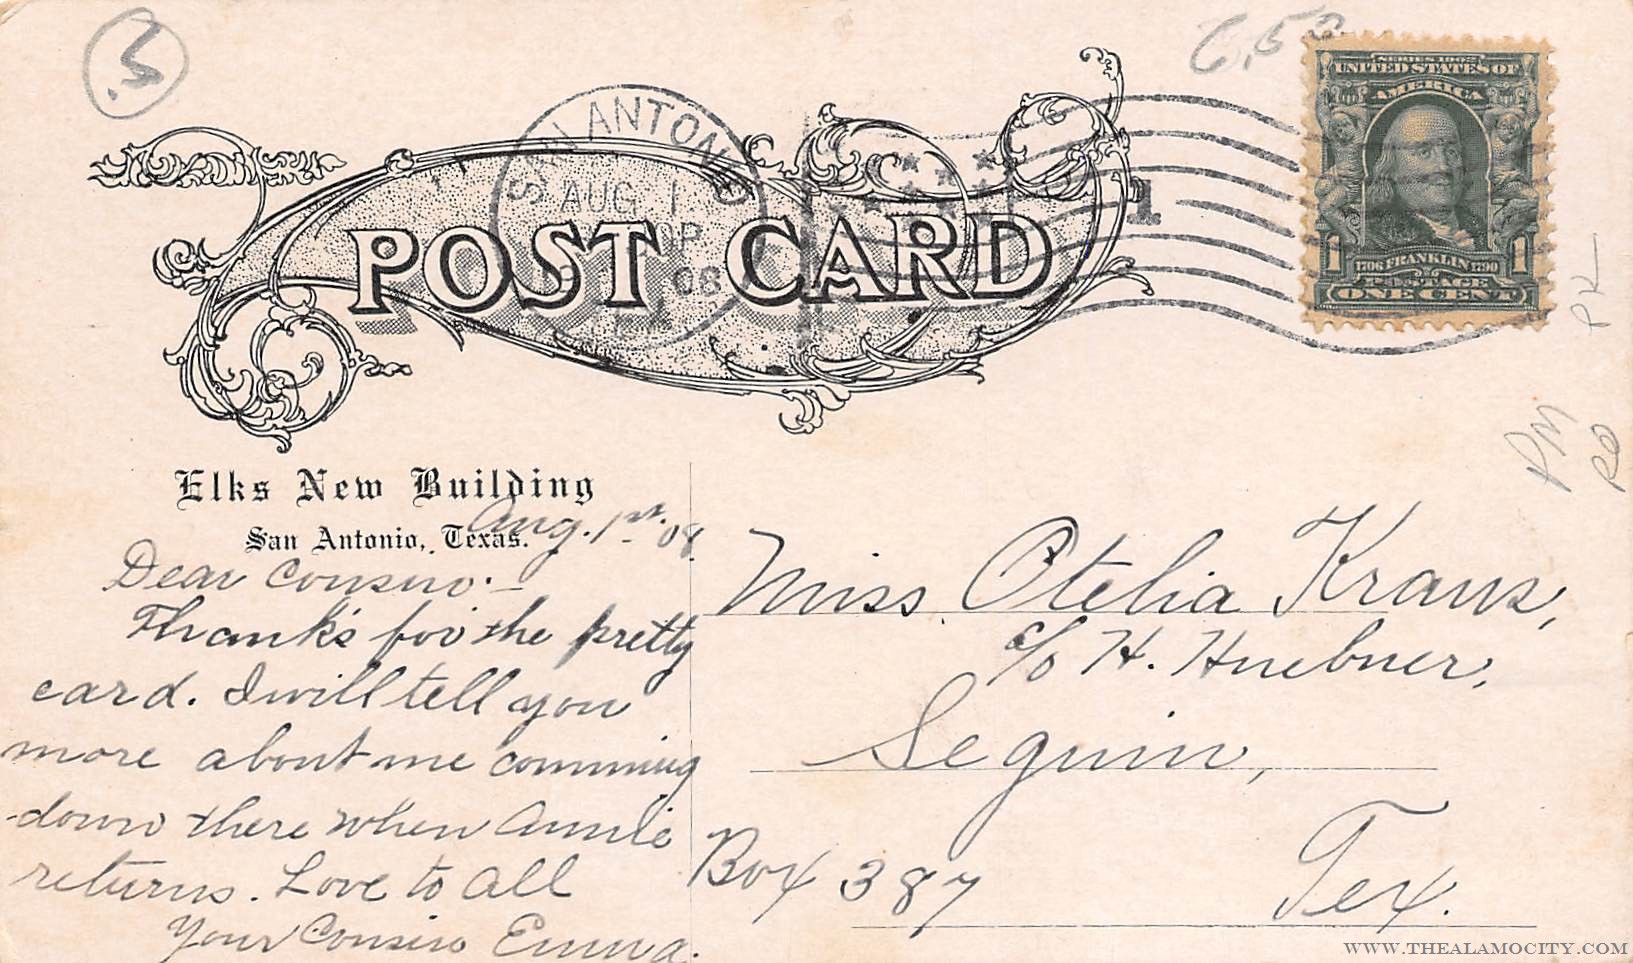 .5
6.50
SERIES 1902
UNITED STATES OF
AMERICA
1 1706 FRANKLIN 1790 1
POSTAGE
ONE CENT
SAN ANTONIO
AUG 1
08
1
POST CARD
PM
Elks New Building
San Antonio, Texas.
Aug. 1st. 08.
Dear Cousin:—
Thank's for the pretty
card. I will tell you
more about me comming
down there when Annie
returns. Love to all
Your Cousin Emma.
Miss. Otelia Kraus,
c/o H. Huebner,
Seguin,
Box 387 Tex.
WWW.THEALAMOCITY.COM